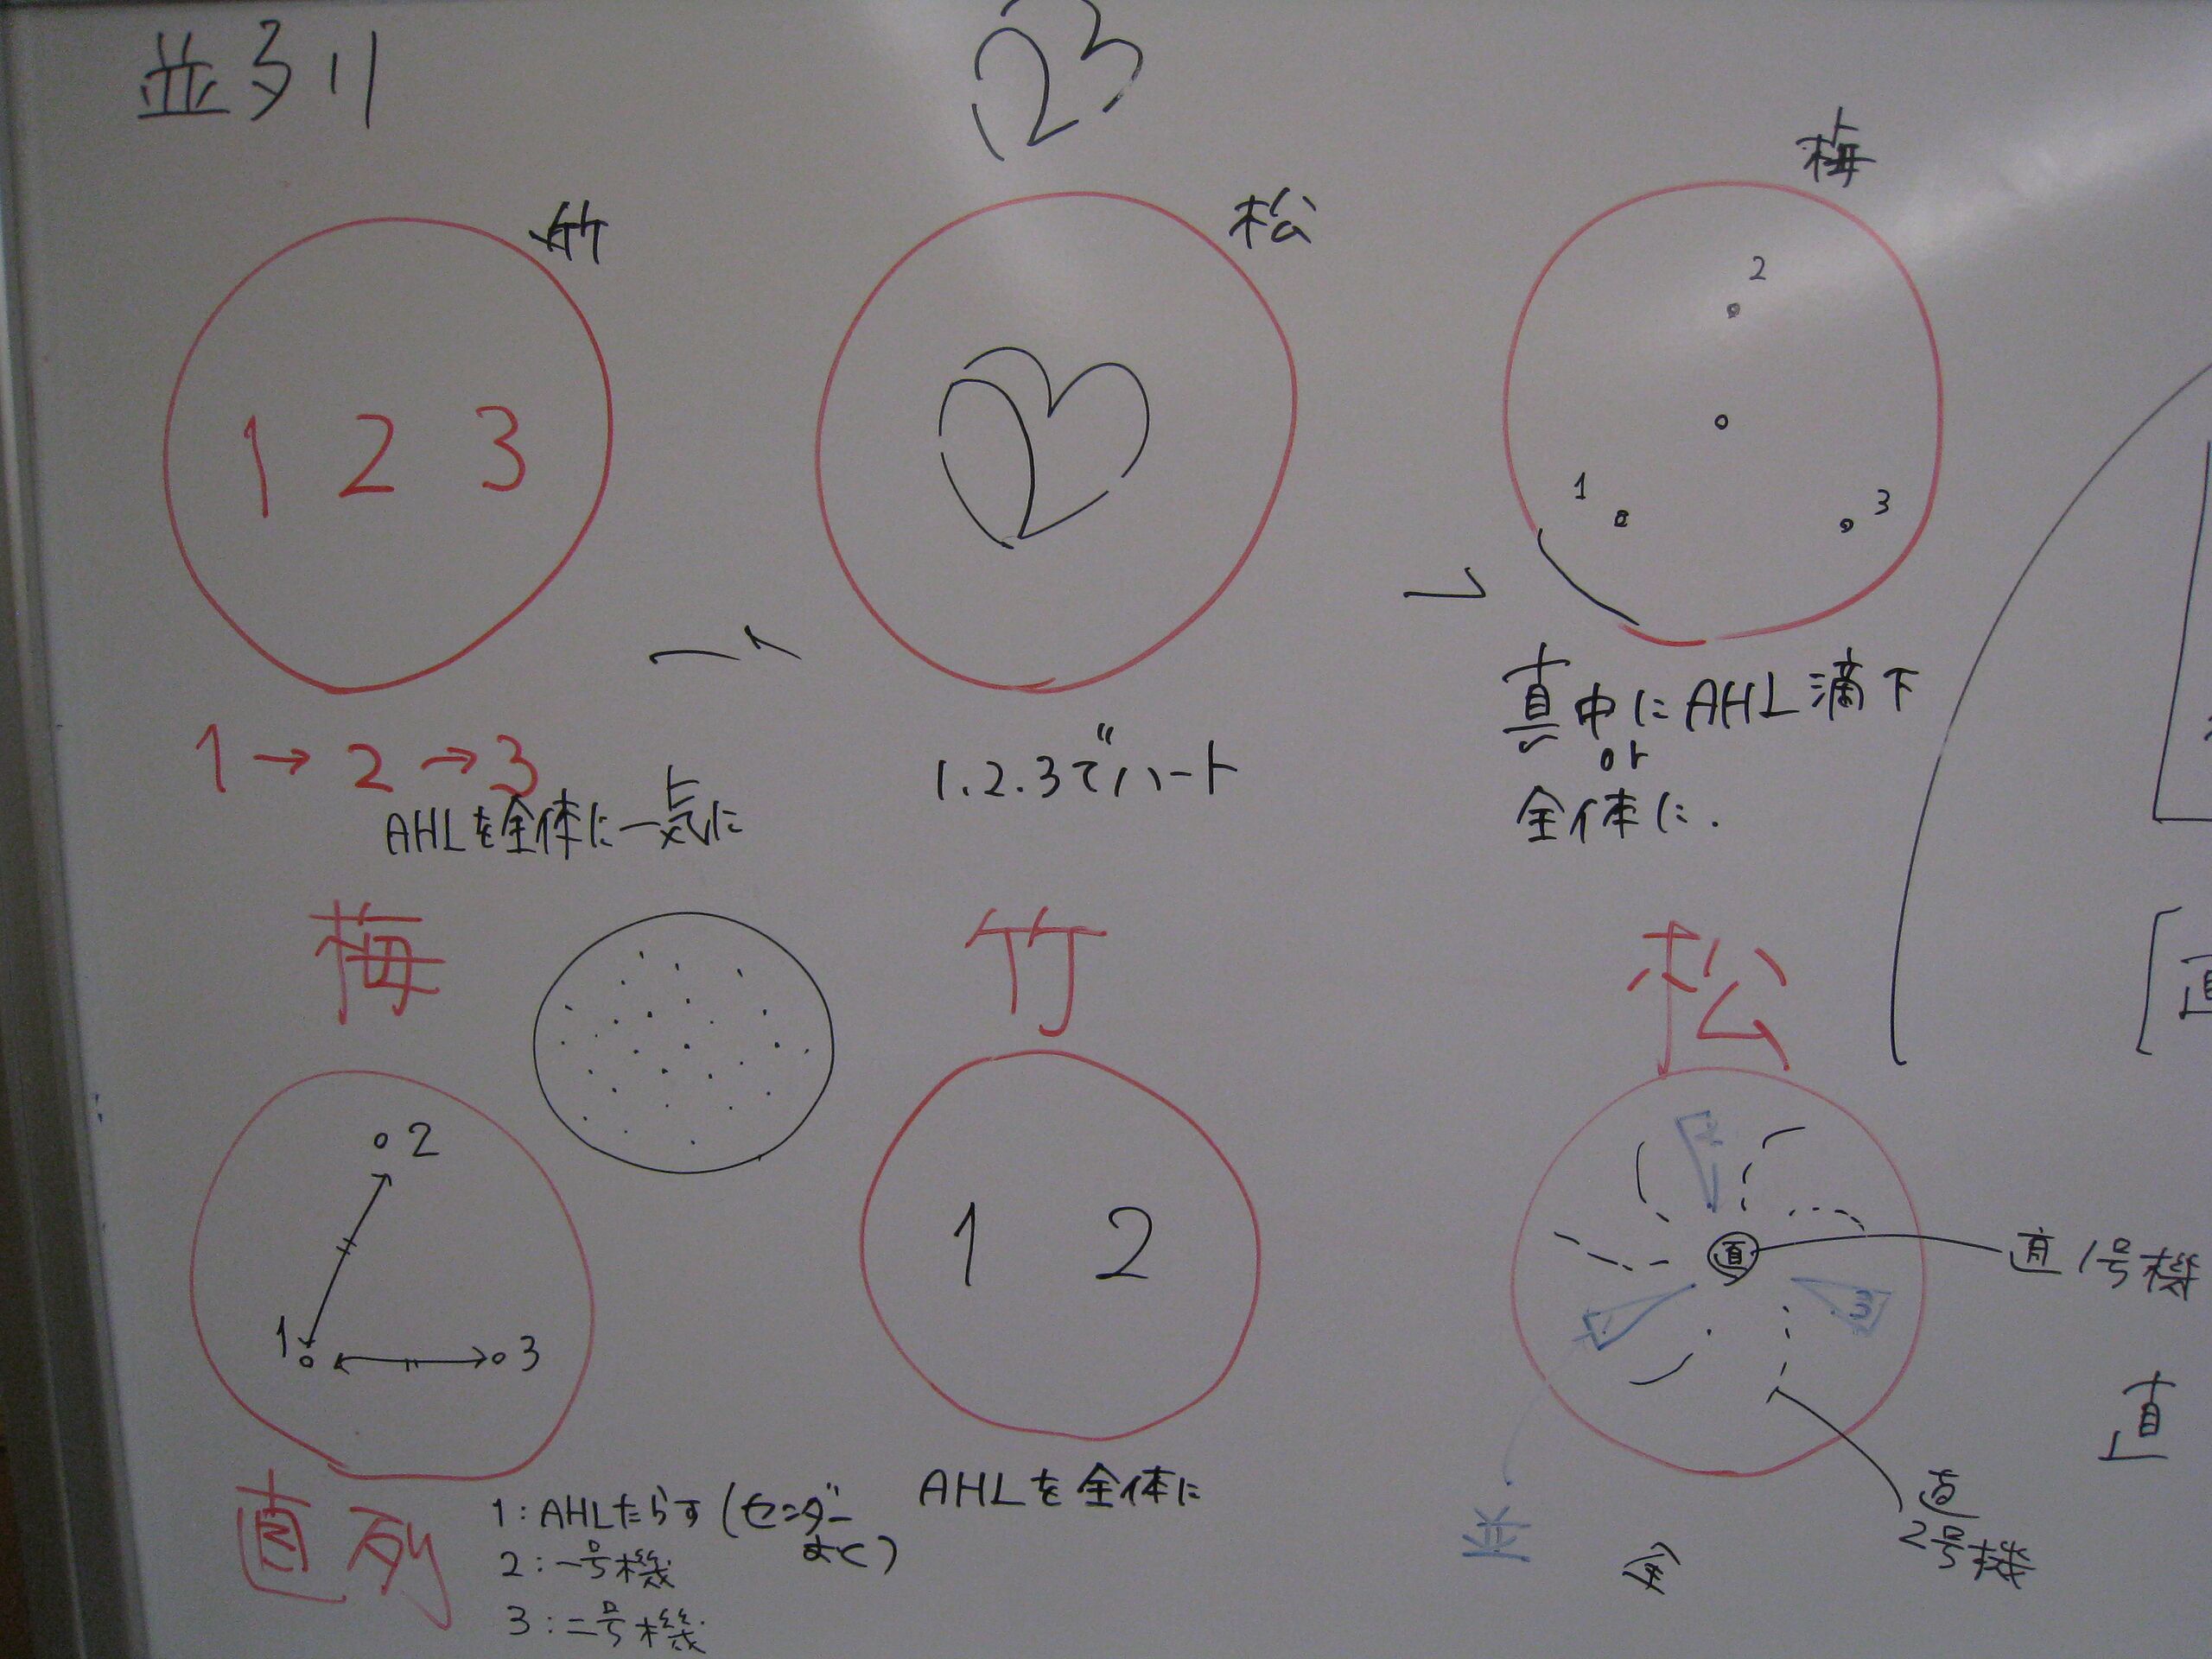 並列
123
竹
松
梅
1 2 3
2
1
3
1→2→3
AHLを全体に一気に
1.2.3でハート
真中にAHL滴下
or
全体に.
梅
竹
松
2
1
3
1 2
直
1
3
直1号機
直
直列
1:AHLたらす(センダー
まく)
2:一号機
3:二号機
AHLを全体に
並
全
直
2号機